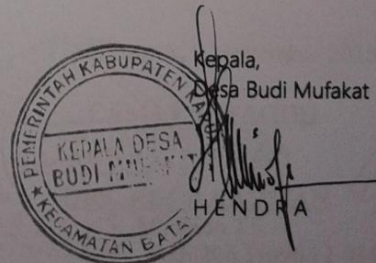 Kepala,
Desa Budi Mufakat
PEMERINTAH KABUPATEN
KEPALA DESA
BUDI
KECAMATAN
HENDRA